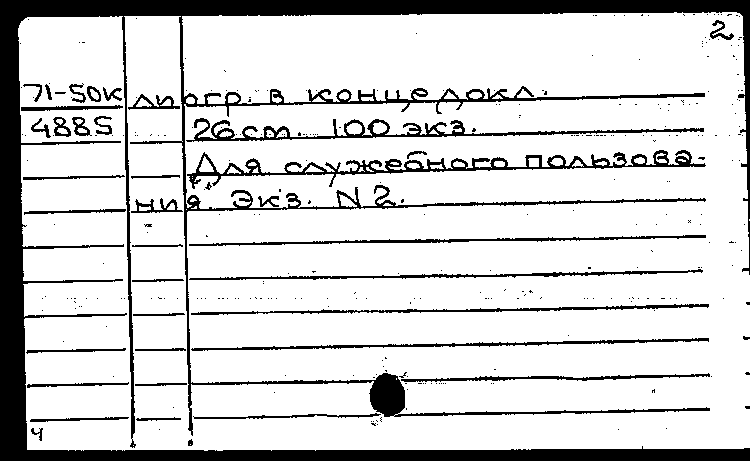 2
71-50к лиогр. в конце докл.
4885 26 см. 100 экз.
Для служебного пользова-
ния. Экз. N 2.
ч